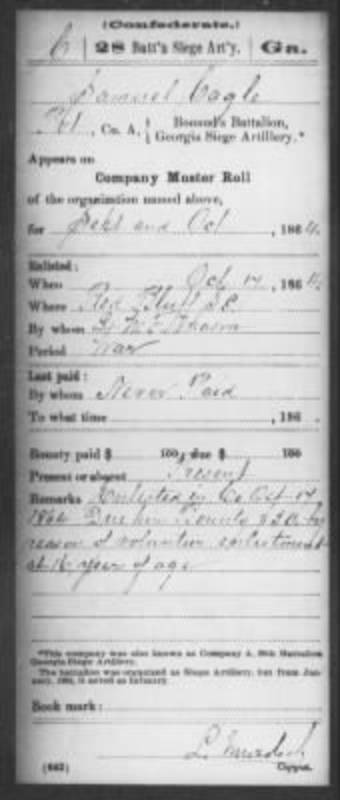 (Confederate.)
C | 28 Batt'n Siege Art'y. | Ga.
Samuel Cagle
Pvt, Co. A, { Bonaud's Battalion,
Georgia Siege Artillery.*
Appears on
Company Muster Roll
of the organization named above,
for Sept and Oct, 1864.
Enlisted:
When Oct 17, 1864
Where Red Bluff S.C.
By whom
Period War
Last paid:
By whom Never Paid
To what time , 186 .
Bounty paid $ 100; due $ 100
Present or absent Present
Remarks Enlisted in Co Oct 17
1864 Due him Bounty $50 by
reason of volunteer enlistment
at 16 year of age
*This company was also known as Company A, 28th Battalion
Georgia Siege Artillery.
The battalion was organized as Siege Artillery, but from Jan-
uary, 1864, it served as infantry
Book mark:
(642) Copyist.